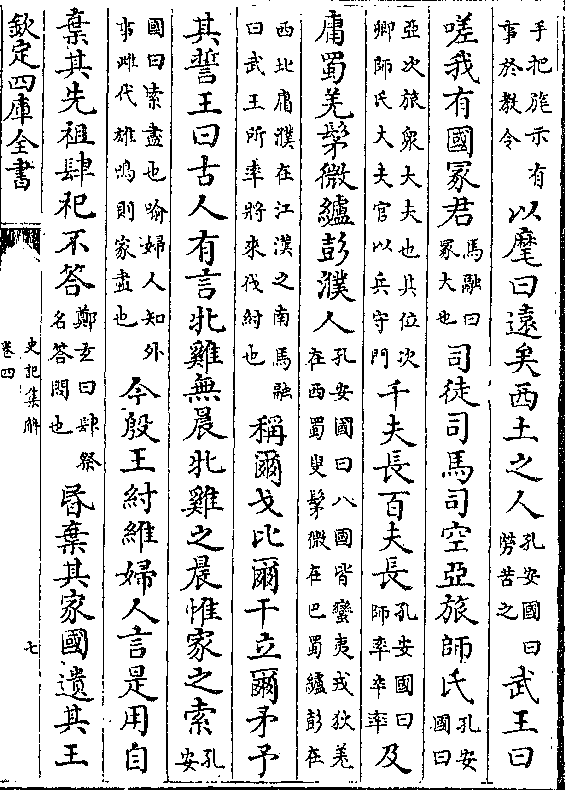 手把旄示有事於教令以麾曰遠矣西土之人孔安國曰勞苦之武王曰
嗟我有國冢君馬融曰冢大也司徒司馬司空亞旅師氏孔安國曰
亞次旅衆大夫也其位次卿師氏大夫官以兵守門千夫長百夫長孔安國曰師率卒率及
庸蜀羌髳微纑彭濮人孔安國曰八國皆蠻夷戎狄羌在西蜀叟髳微在巴蜀纑彭在
西北庸濮在江漢之南馬融曰武王所率將來伐紂也稱爾戈比爾干立爾矛予
其誓王曰古人有言牝雞無晨牝雞之晨惟家之索孔安
國曰索盡也喻婦人知外事雌代雄鳴則家盡也今殷王紂維婦人言是用自
棄其先祖肆祀不答鄭玄曰肆祭名答問也昬棄其家國遺其王
欽定四庫全書
史記集解
卷四
七